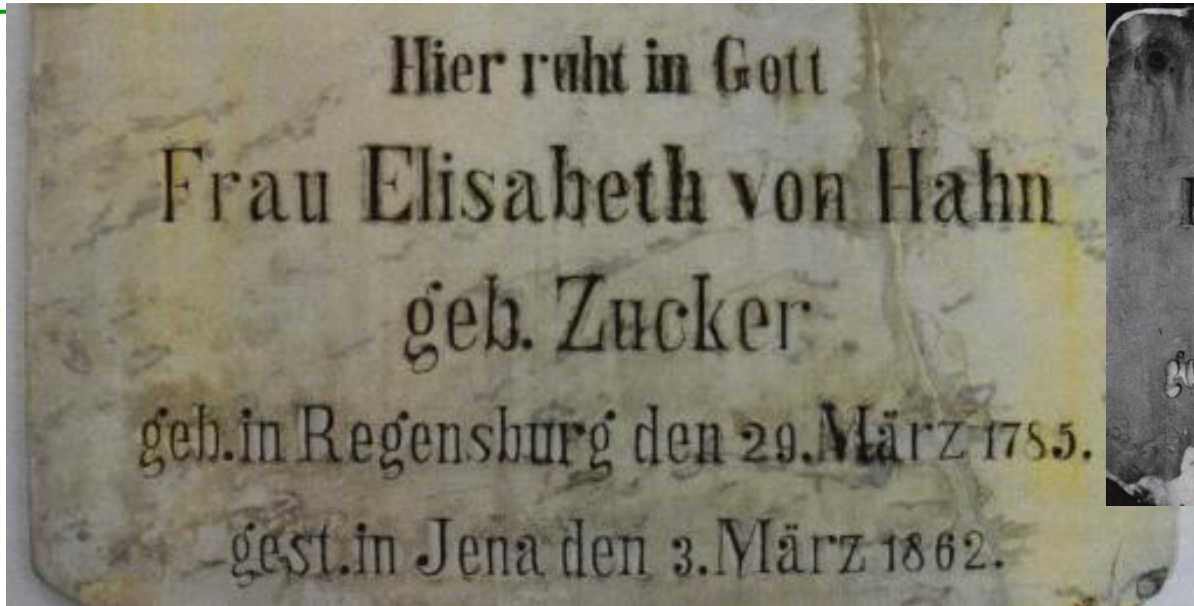 Hier ruht in Gott
Frau Elisabeth von Hahn
geb. Zucker
geb. in Regensburg den 29. März 1785.
gest. in Jena den 3. März 1862.